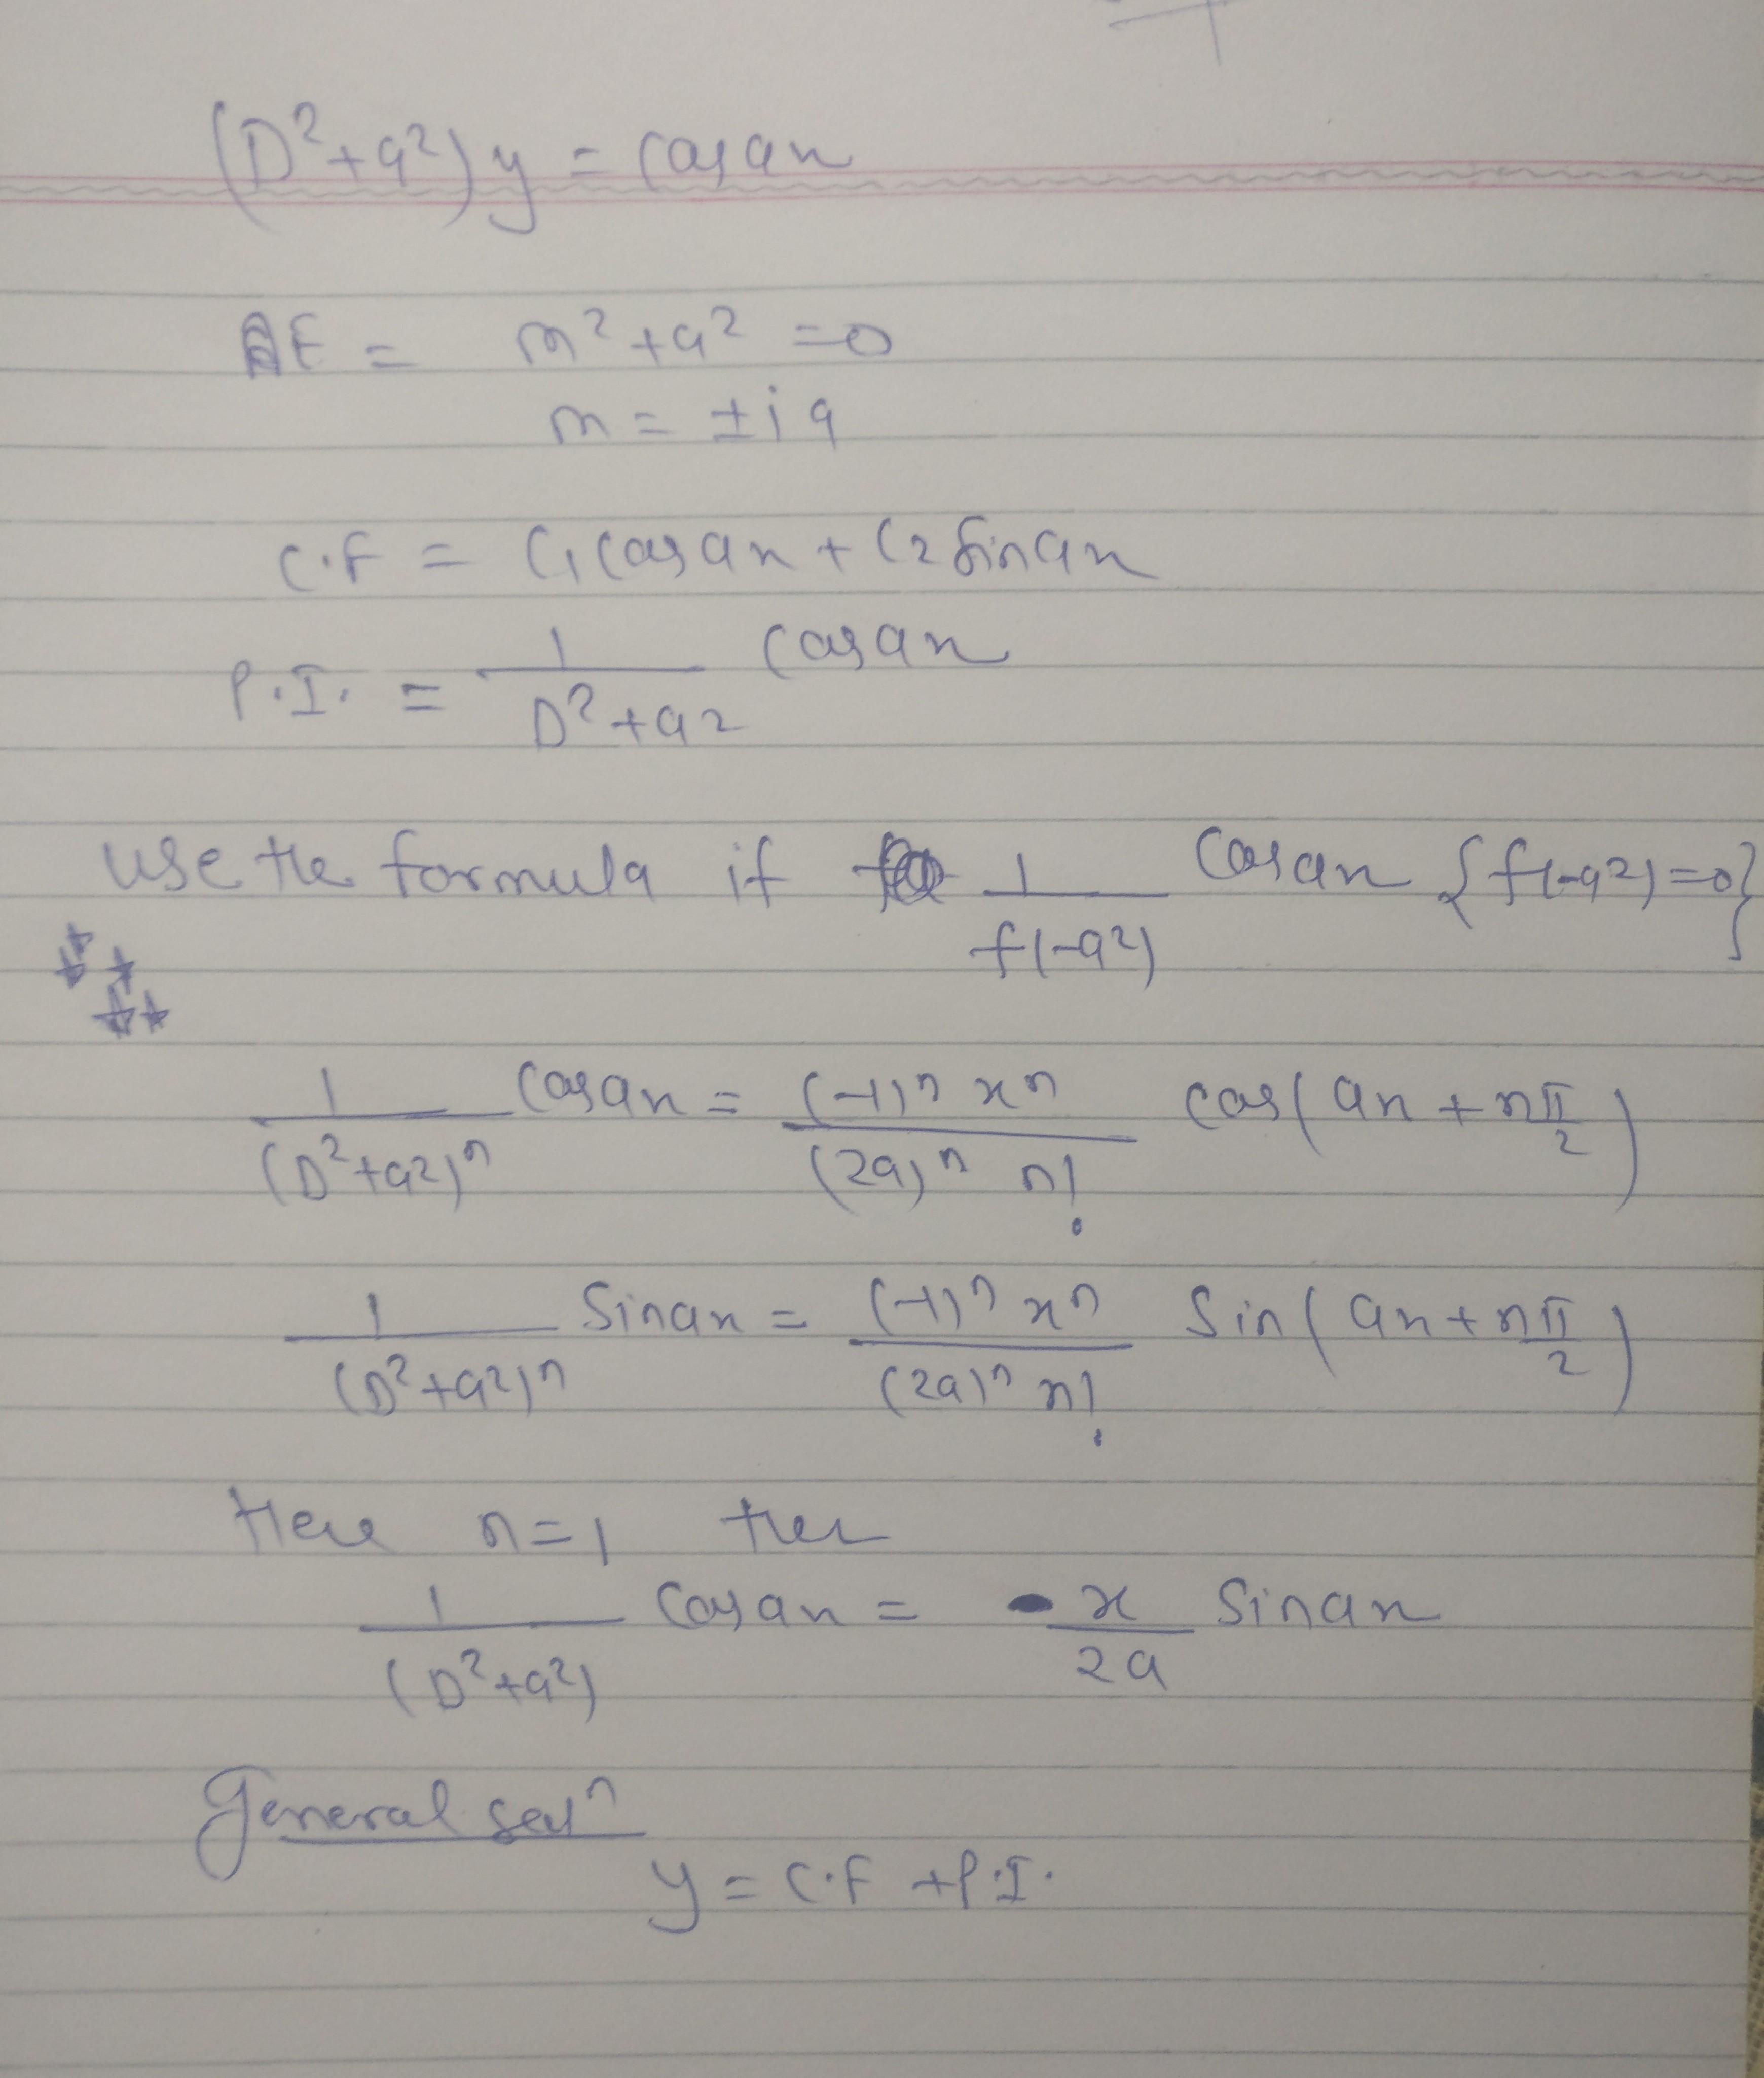 (D²+a²)y = cosax
AE = m²+a² =0
m = ±ia
C.F = C₁cosax + C₂sinax
P.I. = 1/(D²+a²) cosax
Use the formula if 1/f(-a²) cosax {f(-a²)=0}
1/(D²+a²)ⁿ cosax = (-1)ⁿ xⁿ/((2a)ⁿ n!) cos(ax + nπ/2)
1/(D²+a²)ⁿ Sinax = (-1)ⁿ xⁿ/((2a)ⁿ n!) Sin(ax + nπ/2)
Here n=1 then
1/(D²+a²) cosax = x/2a Sinax
General solⁿ
y = C.F + P.I.